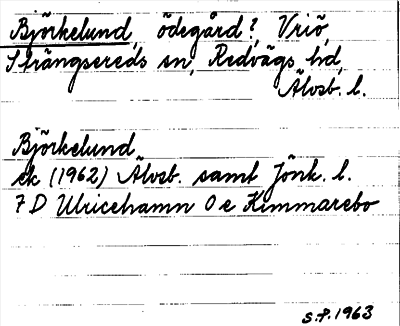 Björkelund, ödegård?, Vriö,
Strängsereds sn, Redvägs hd,
Älvsb. l.
Björkelund
ek (1962) Älvsb. samt Jönk. l.
7 D Ulricehamn O e Kimmarebo
S.P. 1963